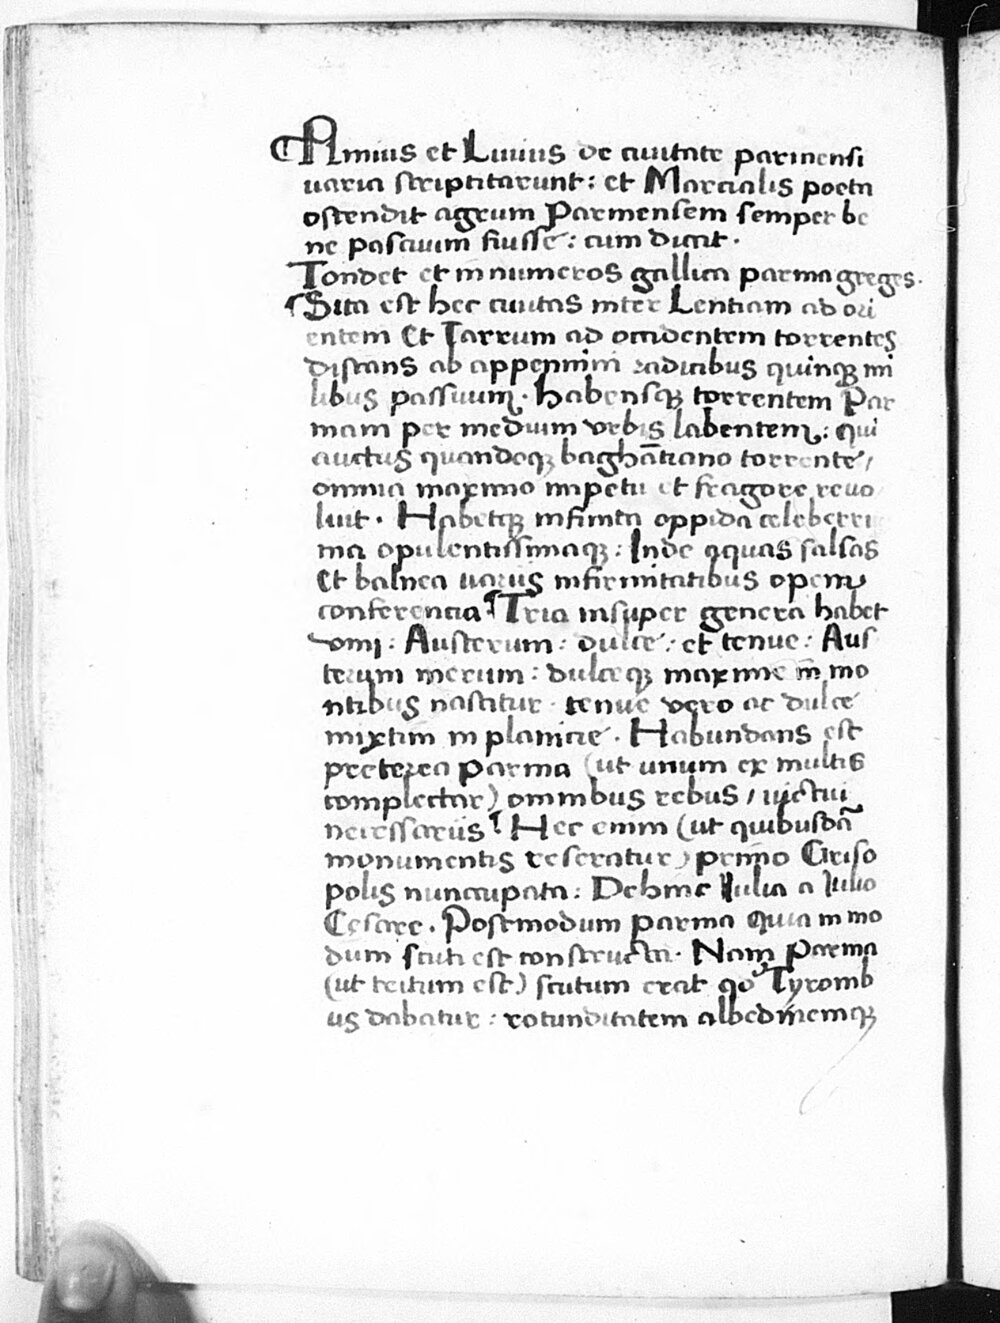 ¶ Amius et Liuius de ciuitate parmensi
uaria scriptitarunt: et Marcialis poeta
ostendit agrum Parmensem semper be
ne pascuum fiusse: cum dicit.
Tondet et innumeros gallica parma greges.
¶ Sita est hec ciuitas inter Lentiam ad ori
entem Et Tarrum ad occidentem torrentes
distans ab appennini radicibus quinqꝫ mi
libus passuum. Habensqꝫ torrentem Par
mam per medium vrbis labentem: qui
auctus quandoqꝫ baghātiano torrente/
omnia maximo impetu et fragore reuo
luit. Habetqꝫ infinita oppida celeberri
ma opulentissimaqꝫ: Inde aquas salsas
Et balnea uariis infirmitatibus opem
conferentia ¶ Tria insuper genera habet
vini: Austerum: dulce: et tenue: Aus
terum merum: dulceqꝫ maxime in mo
ntibus nascitur. tenue vero ac dulce
mixtim in planicie. Habundans est
preterea Parma (ut unum ex multis
complectar) omnibus rebus / uictui
necessariis ¶ Hec enim (ut quibusdā
monumentis reseratur) primo Criso
polis nuncupata: Dehinc Iulia a Iulio
Cesare. Postmodum parma quia in mo
dum scuti est constructa. Nam Parma
(ut tritum est) scutum erat qo Tyronib
us dabatur: rotunditatem albedinemqꝫ